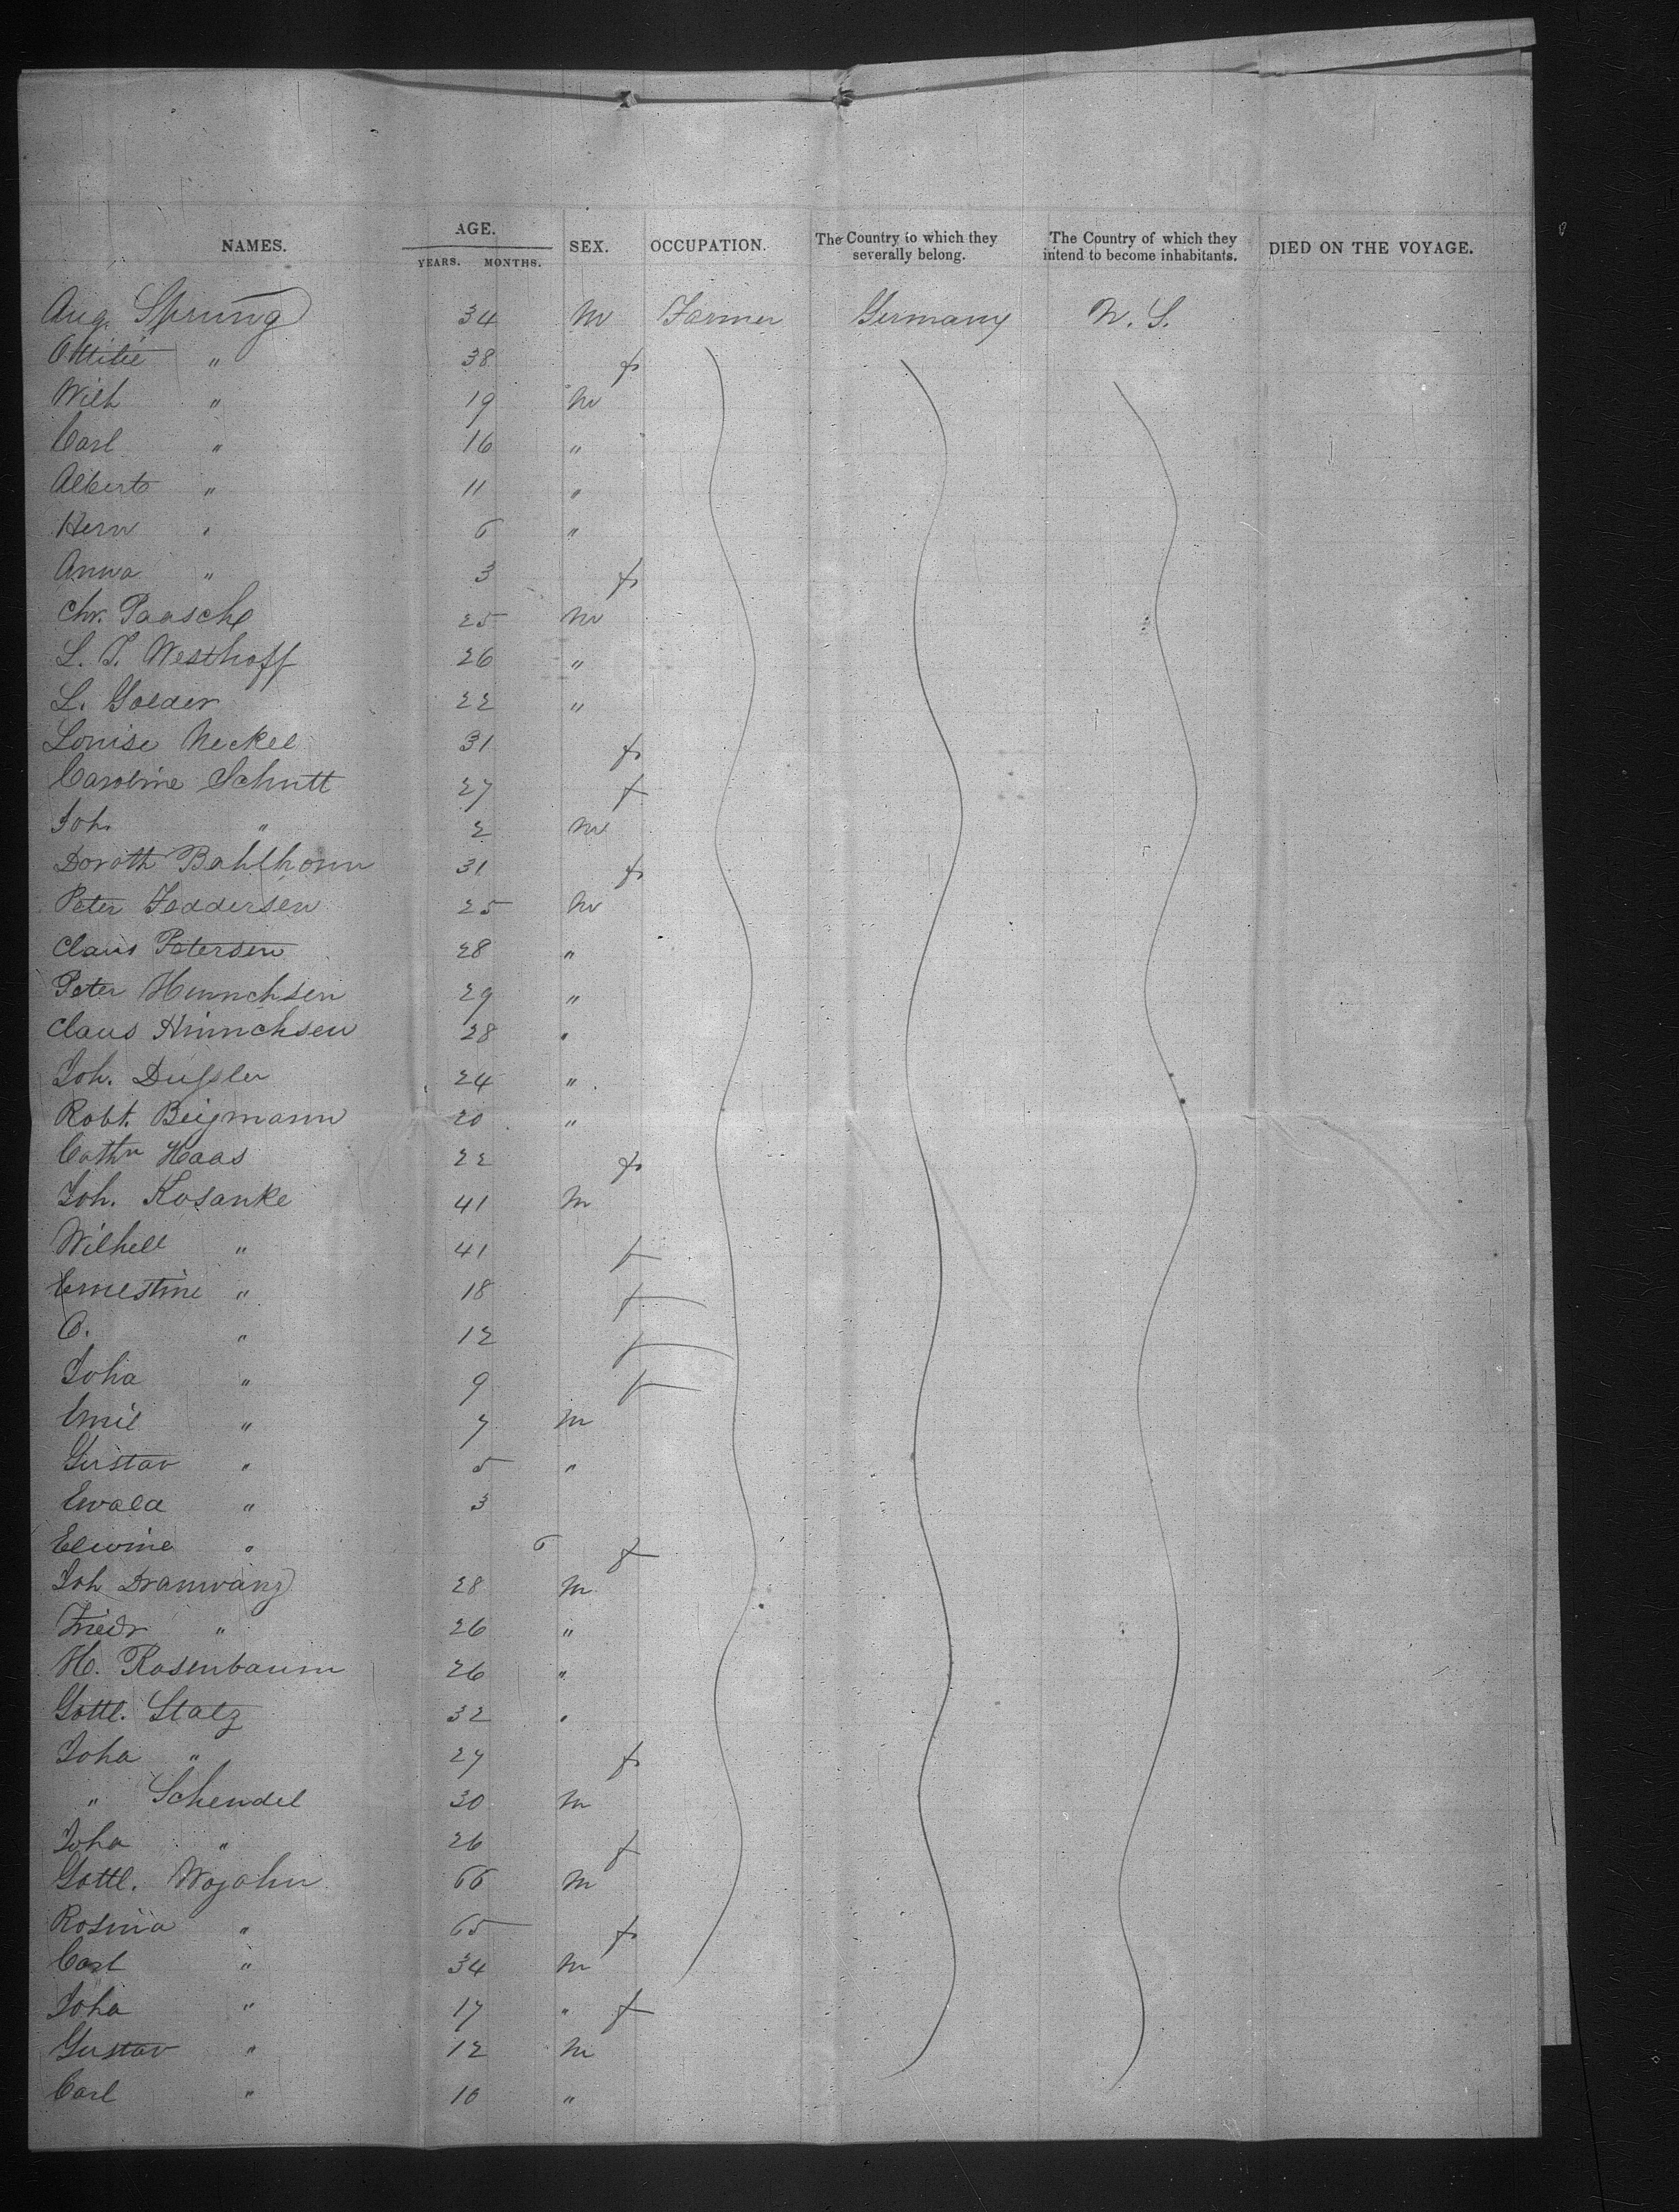 NAMES. AGE. YEARS. MONTHS. SEX. OCCUPATION. The Country to which they severally belong. The Country of which they intend to become inhabitants. DIED ON THE VOYAGE.
Aug. Sprung 34 M Farmer Germany U. S.
Ottilie " 38 f
Wilh " 19 M
Carl " 16 "
Albert " 11 "
Herm " 6 "
Anna " 3 f
Chr. Paasche 25 M
L. T. Westhoff 26 "
L. Golder 22 "
Louise Neckel 31 f
Caroline Schutt 27 f
Joh. " 2 M
Doroth Bahlhorn 31 f
Peter Foddersen 25 M
Claus Petersen 28 "
Peter Hinrichsen 29 "
Claus Hinrichsen 28 "
Joh. Dussler 24 "
Robt. Beigmann 20 "
Cathn Haas 22 f
Joh. Kosanke 41 M
Wilhell " 41 f
Ernestine " 18 f
O. " 12 f
Joha " 9 f
Emil " 7 M
Gustav " 5 "
Ewald " 3
Elwine " 6 f
Joh 28 M
Friedr " 26 "
H. Rosenbaum 26 "
Gottl. Stalz 32 "
Joha " 27 f
" Schendel 30 M
Joha " 26 f
Gottl. Wojahn 66 M
Rosina " 65 f
Carl " 34 M
Joha " 17 " f
Gustav " 12 M
Carl " 10 "